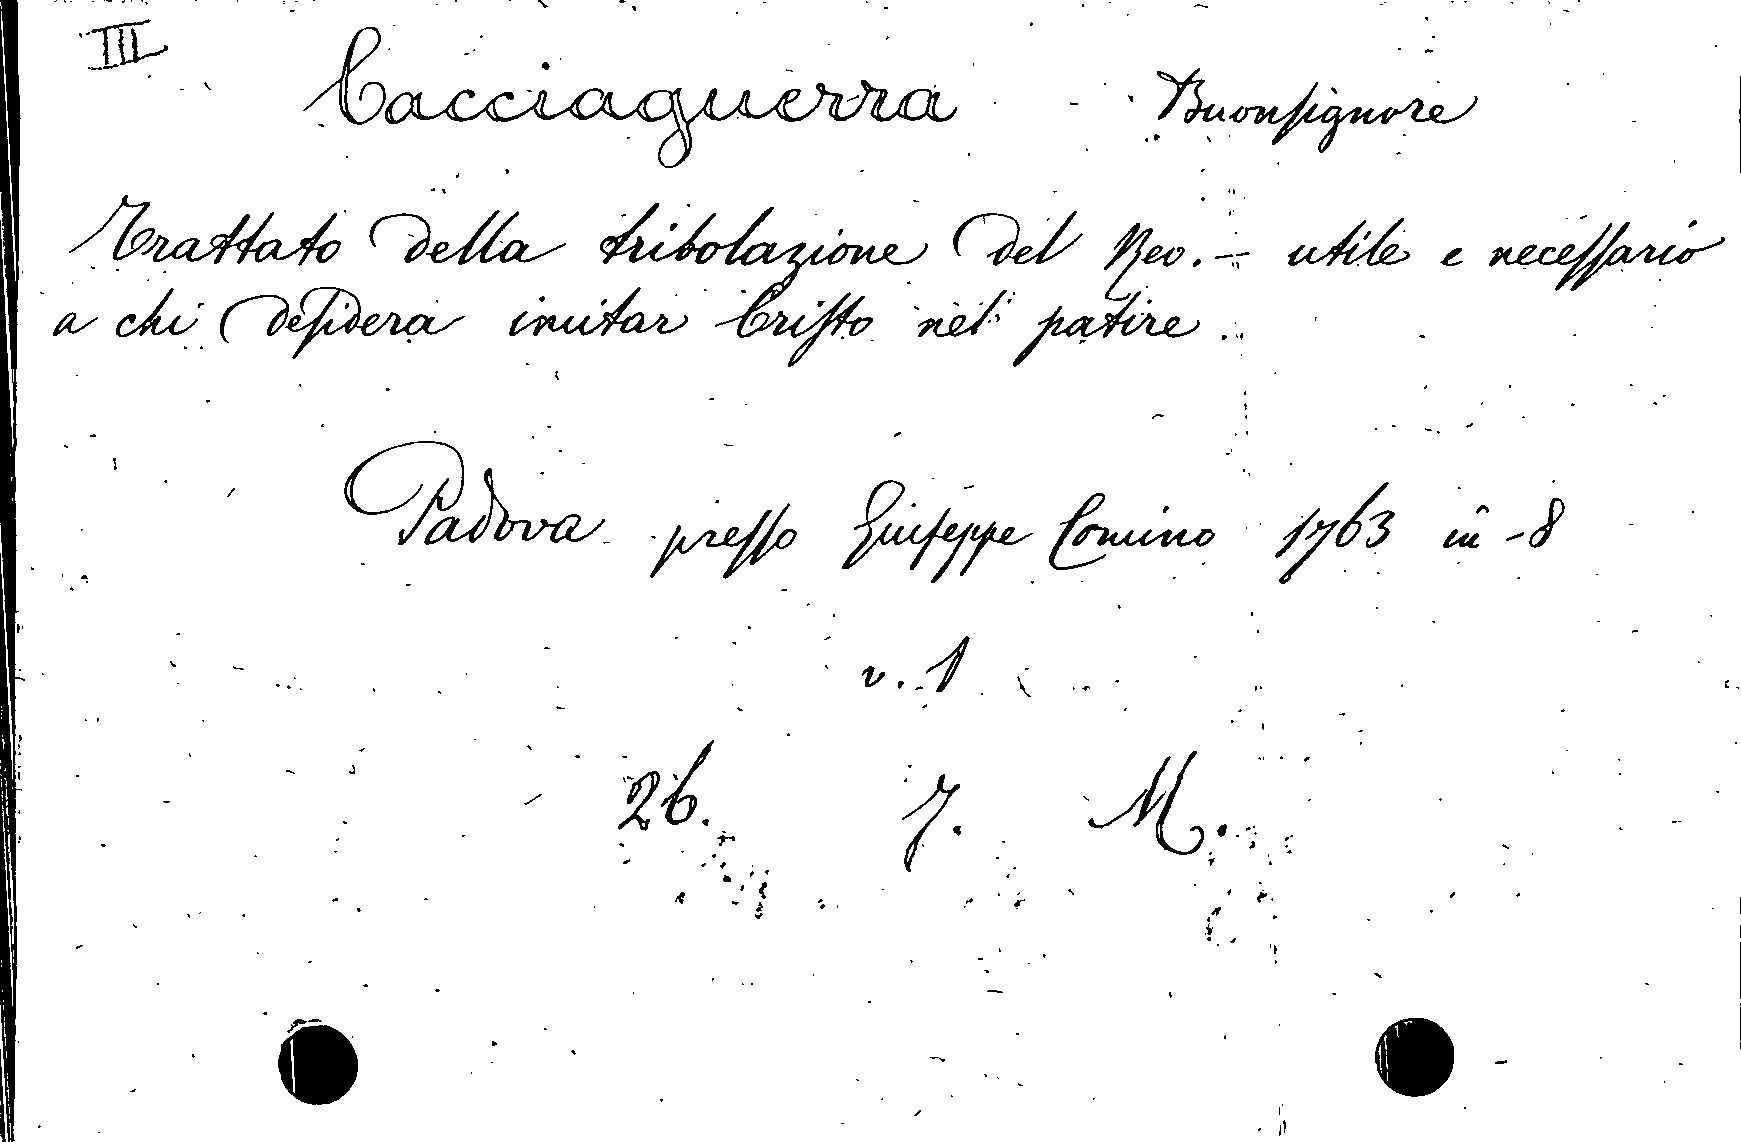 III
Cacciaguerra Buonsignore
Trattato della tribolazione del Rev. - utile e necessario
a chi desidera imitar Cristo nel patire.
Padova presso Giuseppe Comino 1763 in -8
v. 1
26. 7. M.